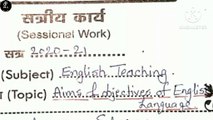 सत्रीय कार्य
(Sessional Work)
सत्र 2020-21
(Subject) English Teaching
(Topic) Aims & objectives of English
Language